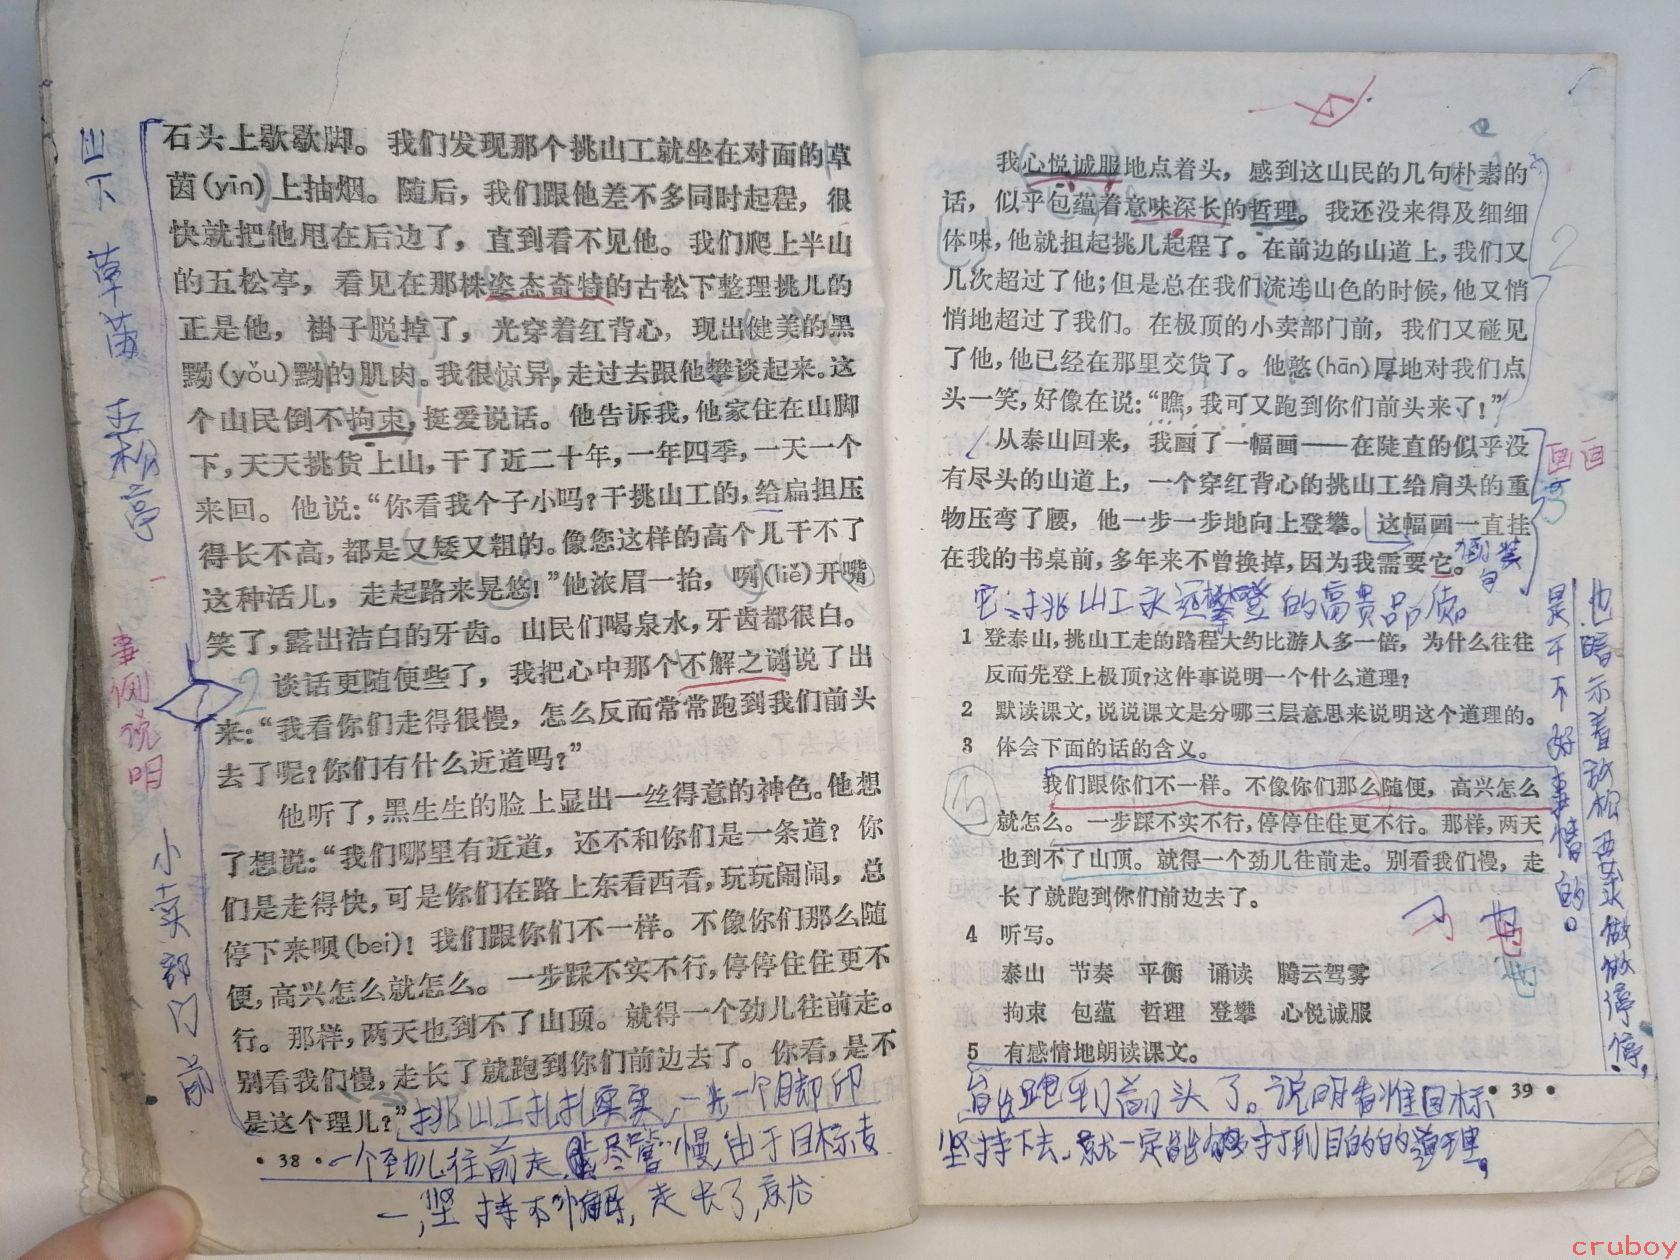 石头上歇歇脚。我们发现那个挑山工就坐在对面的草
茵(yīn)上抽烟。随后，我们跟他差不多同时起程，很
快就把他甩在后边了，直到看不见他。我们爬上半山
的五松亭，看见在那株姿态奇特的古松下整理挑儿的
正是他，褂子脱掉了，光穿着红背心，现出健美的黑
黝(yǒu)黝的肌肉。我很惊异，走过去跟他攀谈起来。这
个山民倒不拘束，挺爱说话。他告诉我，他家住在山脚
下，天天挑货上山，干了近二十年，一年四季，一天一个
来回。他说：“你看我个子小吗？干挑山工的，给扁担压
得长不高，都是又矮又粗的。像您这样的高个儿干不了
这种活儿，走起路来晃悠！”他浓眉一抬，咧(liě)开嘴
笑了，露出洁白的牙齿。山民们喝泉水，牙齿都很白。
谈话更随便些了，我把心中那个不解之谜说了出
来：“我看你们走得很慢，怎么反而常常跑到我们前头
去了呢？你们有什么近道吗？”
他听了，黑生生的脸上显出一丝得意的神色。他想
了想说：“我们哪里有近道，还不和你们是一条道？你
们是走得快，可是你们在路上东看西看，玩玩闹闹，总
停下来呗(bei)！我们跟你们不一样。不像你们那么随
便，高兴怎么就怎么。一步踩不实不行，停停住住更不
行。那样，两天也到不了山顶。就得一个劲儿往前走。
别看我们慢，走长了就跑到你们前边去了。你看，是不
是这个理儿？”
挑山工扎扎实实，一步一个脚印
一个劲儿往前走，尽管慢，由于目标专
一，坚持不懈，走长了，就
·38·
山下
草茵
五松亭
事例说明
小卖部门前
2
我心悦诚服地点着头，感到这山民的几句朴素的
话，似乎包蕴着意味深长的哲理。我还没来得及细细
体味，他就担起挑儿起程了。在前边的山道上，我们又
几次超过了他；但是总在我们流连山色的时候，他又悄
悄地超过了我们。在极顶的小卖部门前，我们又碰见
了他，他已经在那里交货了。他憨(hān)厚地对我们点
头一笑，好像在说：“瞧，我可又跑到你们前头来了！”
从泰山回来，我画了一幅画——在陡直的似乎没
有尽头的山道上，一个穿红背心的挑山工给肩头的重
物压弯了腰，他一步一步地向上登攀。这幅画一直挂
在我的书桌前，多年来不曾换掉，因为我需要它。
倒装句
画画
2
它：挑山工永远攀登的高贵品质。
1 登泰山，挑山工走的路程大约比游人多一倍，为什么往往
反而先登上极顶？这件事说明一个什么道理？
2 默读课文，说说课文是分哪三层意思来说明这个道理的。
3 体会下面的话的含义。
我们跟你们不一样。不像你们那么随便，高兴怎么
就怎么。一步踩不实不行，停停住住更不行。那样，两天
也到不了山顶。就得一个劲儿往前走。别看我们慢，走
长了就跑到你们前边去了。
4 听写。
泰山 节奏 平衡 诵读 腾云驾雾
拘束 包蕴 哲理 登攀 心悦诚服
5 有感情地朗读课文。
跑到前头了。说明看准目标
坚持下去，就一定能够打到目的的道理，
·39·
也暗示着松做做停停，
是干不好事情的。
cruboy